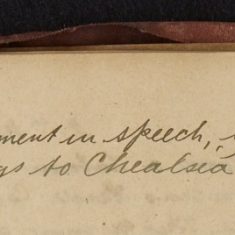 ment in speech,
gs to Chealsea